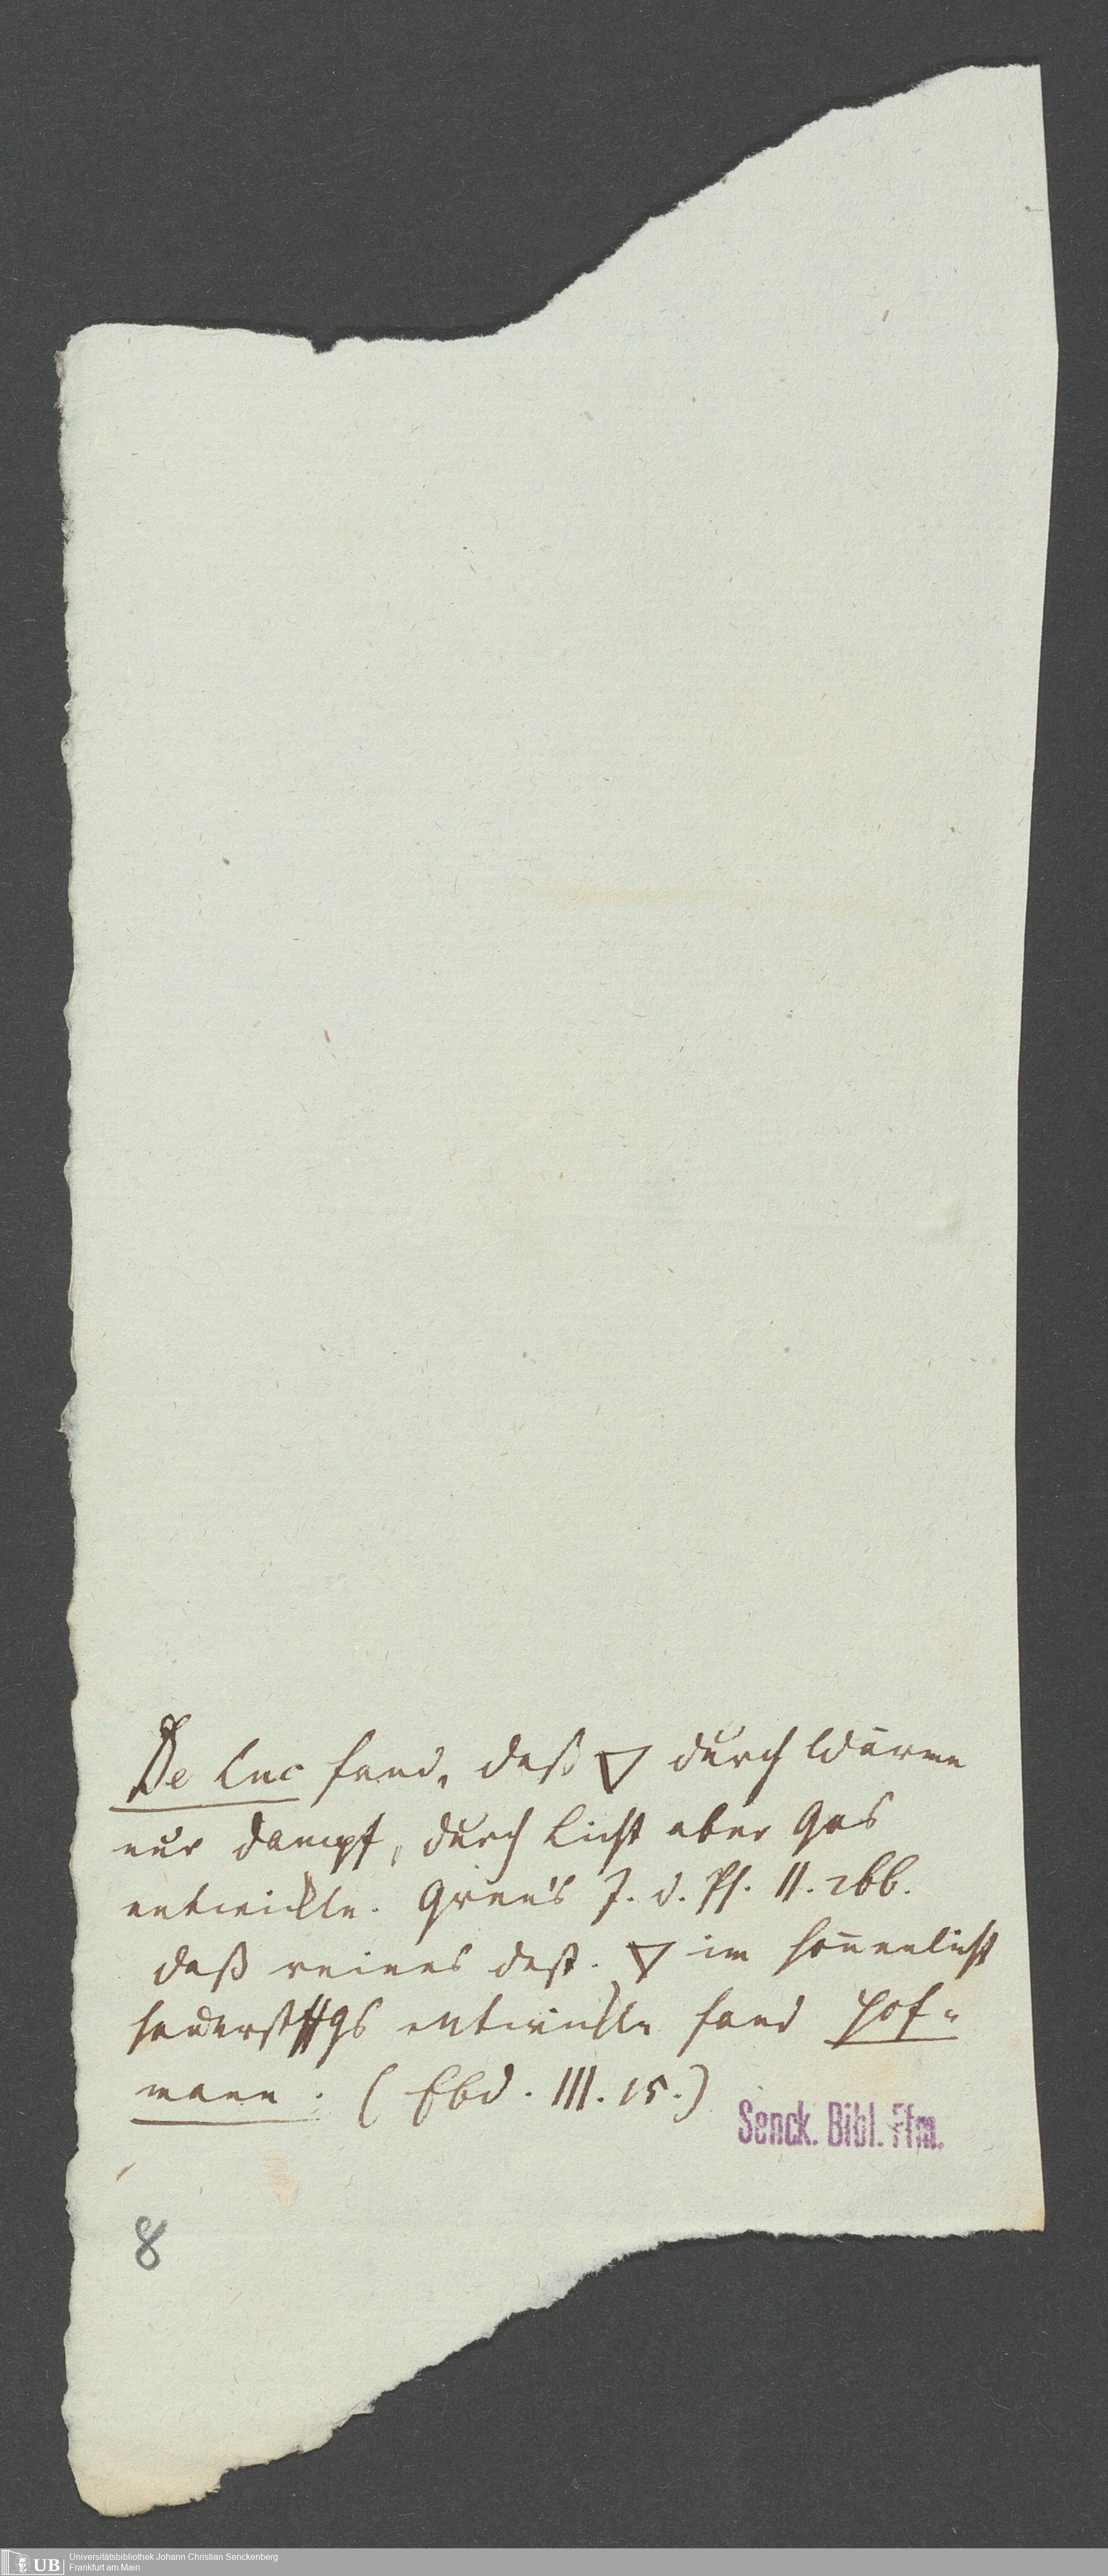 De Luc fand, daß ▽ durch Wärme
nur Dampf, durch Licht aber Gas
entwickle. Gren's J. d. Ph. II. 266.
daß reines dest. ▽ im Sonnenlicht
Sauerstffgs entwickle fand Hof-
mann. (Ebd. III. 15.)
Senck. Bibl. Ffm.
8
UB Universitätsbibliothek Johann Christian Senckenberg
Frankfurt am Main